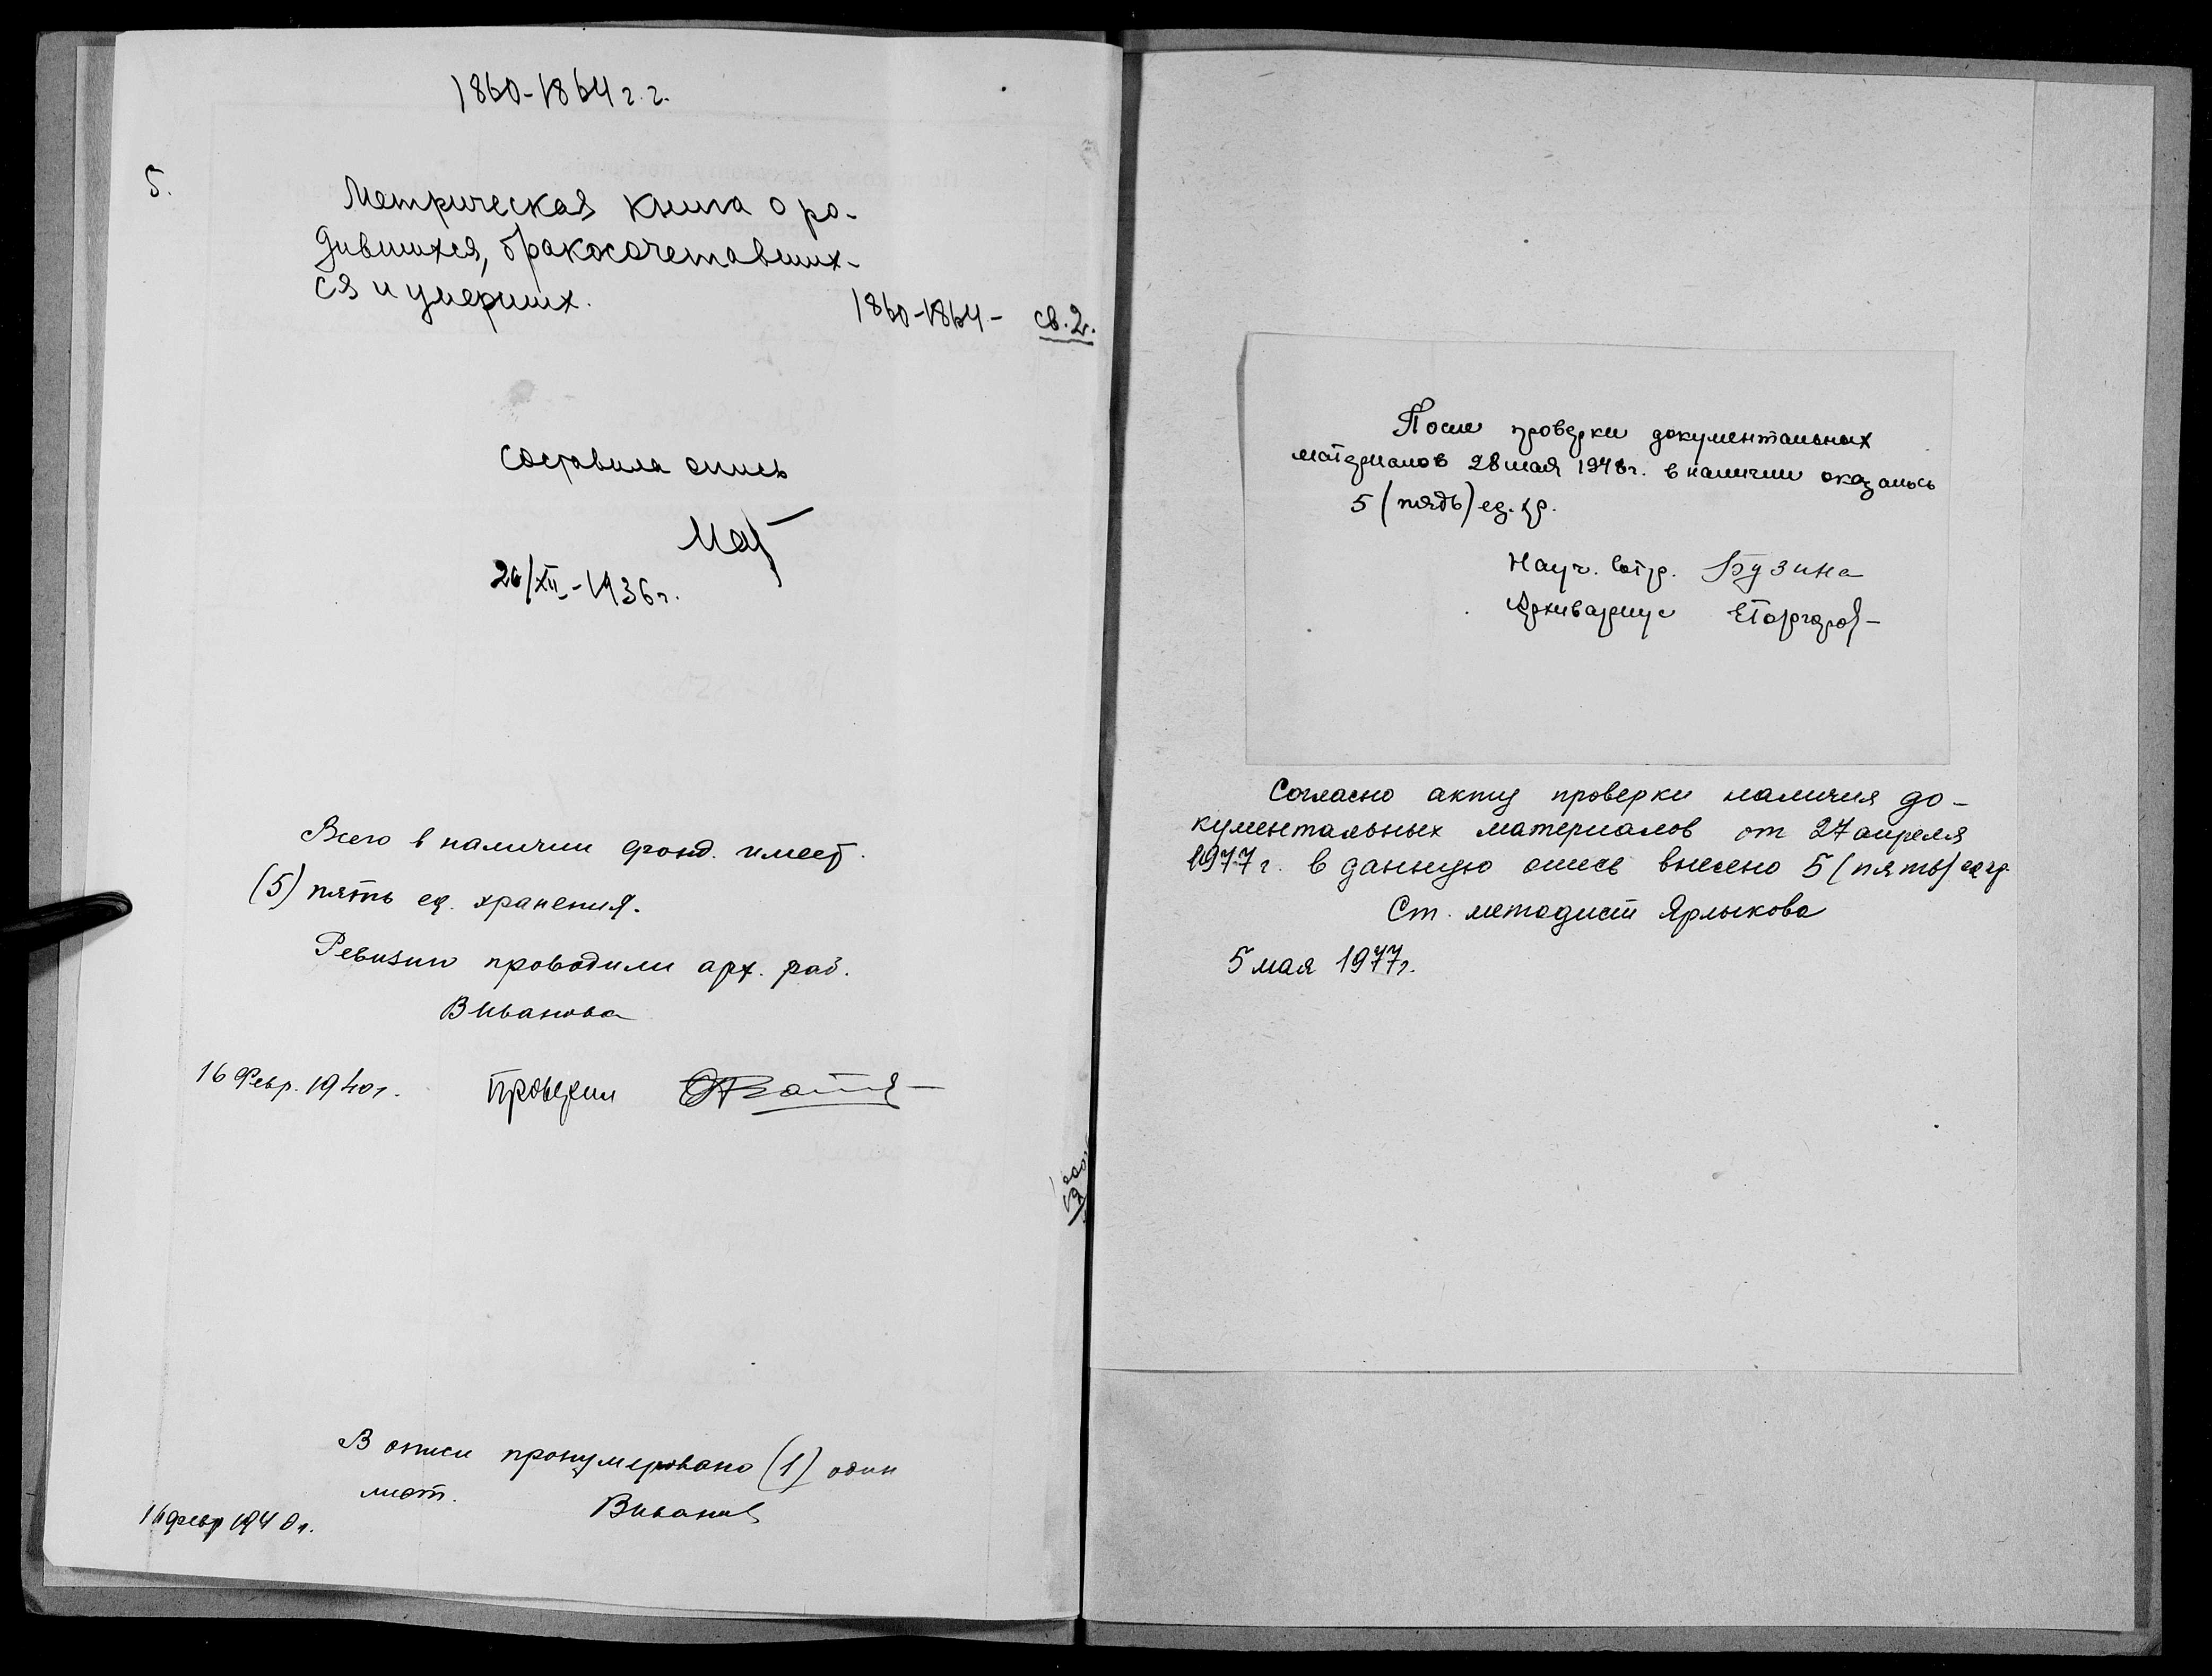 1860-1864 г.г.
5.
Метрическая книга о ро-
дившихся, бракосочетавших-
ся и умерших.
1860-1864 - св. 2.
Составила опись
26/XII-1936 г.
Всего в наличии фонд. имеет
(5) пять ед. хранения.
Ревизию проводили арх. раб.
В Иванова
16 Февр. 1940 г. Проверил
В описи пронумеровано (1) один
лист. В Иванов
16 февр 1940 г.
После проверки документальных
материалов 28 мая 1948 г. в наличии оказалось
5 (пядь) ед. хр.
Науч. сотр. Бузина
Архивариус
Согласно акту проверки наличия до-
кументальных материалов от 27 апреля
1977 г. в данную опись внесено 5 (пять) ед хр.
Ст. методист Ярлыкова
5 мая 1977 г.